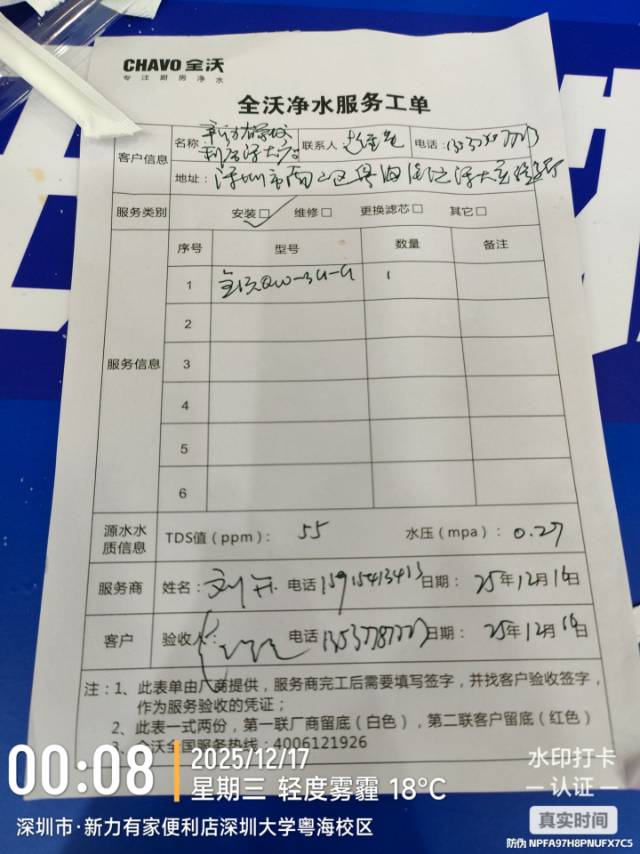 CHAVO 全沃
专注厨房净水
全沃净水服务工单
客户信息 名称： 联系人 电话：
地址：深圳市南山区粤海街道深大
服务类别 安装☑ 维修□ 更换滤芯□ 其它□
服务信息 序号 型号 数量 备注
1 全沃QW-3G-G 1
2
3
4
5
6
源水水质信息 TDS值（ppm）： 55 水压（mpa）： 0.27
服务商 姓名：刘开 电话 15915413413 日期： 25年12月16日
客户 验收人： 电话 日期： 25年12月16日
注：1、此表单由厂商提供，服务商完工后需要填写签字，并找客户验收签字，
作为服务验收的凭证；
2、此表一式两份，第一联厂商留底（白色），第二联客户留底（红色）
3、全沃全国服务热线：4006121926
00:08
2025/12/17
星期三 轻度雾霾 18°C
深圳市·新力有家便利店深圳大学粤海校区
水印打卡
认证
真实时间
防伪 NPFA97H8PNUFX7C5